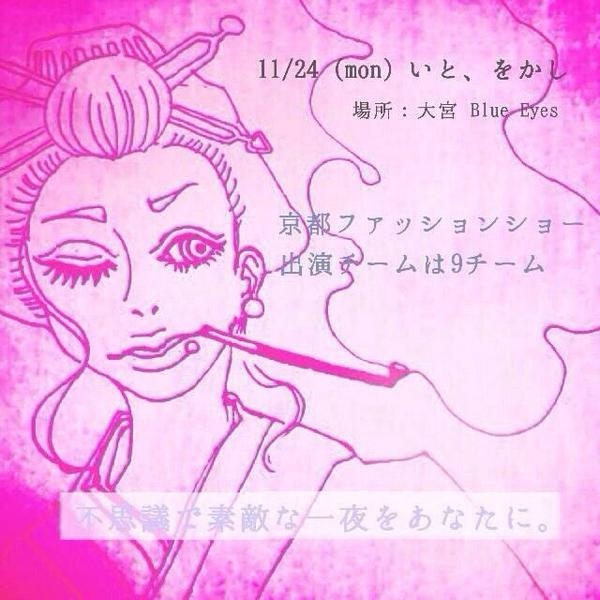 11/24 (mon) いと、をかし
場所：大宮 Blue Eyes
京都ファッションショー
出演チームは9チーム
不思議で素敵な一夜をあなたに。